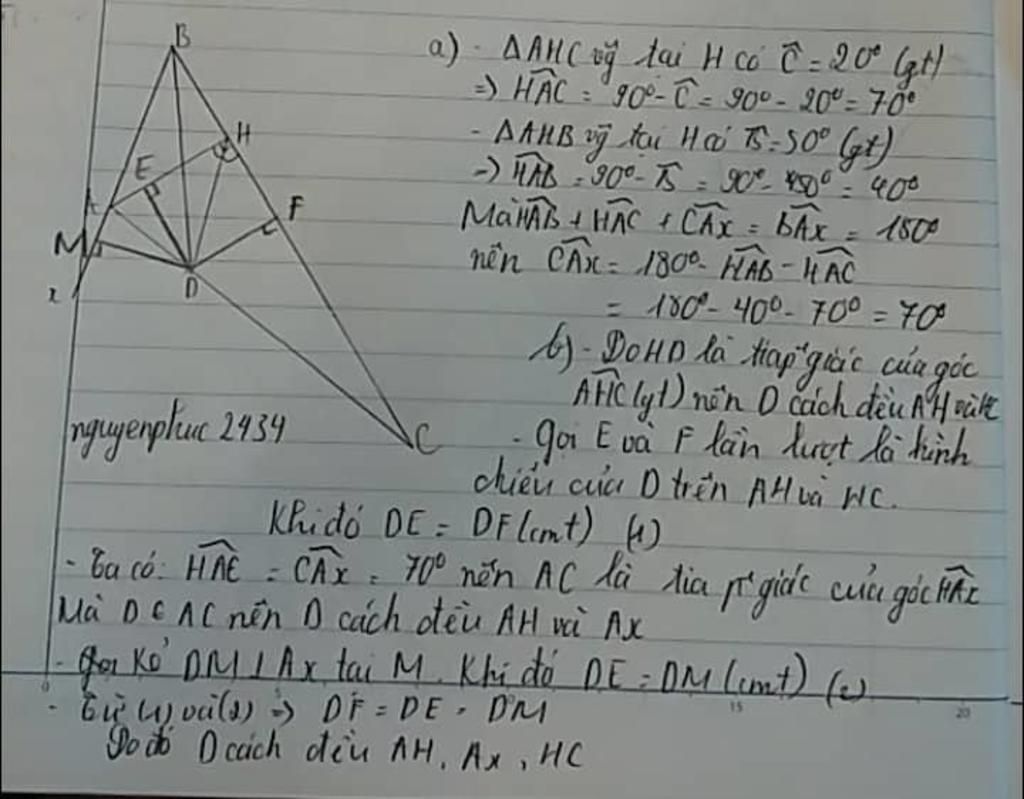 B
H
E
A
F
M
D
x
C
a) - ΔAHC vg̃ tại H có Ĉ = 20° (gt)
=> HAC = 90° - Ĉ = 90° - 20° = 70°
- ΔAHB vg̃ tại H có B̂ = 50° (gt)
=> HAB = 90° - B̂ = 90° - 50° = 40°
Mà HAB + HAC + CAx = BAx = 180°
nên CAx = 180° - HAB - HAC
= 180° - 40° - 70° = 70°
b) - Do HD là tia p giác của góc
AHC (gt) nên D cách đều AH và HC
nguyenphuc 2434
- Gọi E và F lần lượt là hình
chiếu của D trên AH và HC.
Khi đó DE = DF (cmt) (1)
- Ta có: HAC = CAx = 70° nên AC là tia p giác của góc HAx
Mà D ∈ AC nên D cách đều AH và Ax
- Kẻ DM ⊥ Ax tại M. Khi đó DE = DM (cmt) (2)
- Từ (1) và (2) => DF = DE = DM
Do đó D cách đều AH, Ax, HC
0 15 20